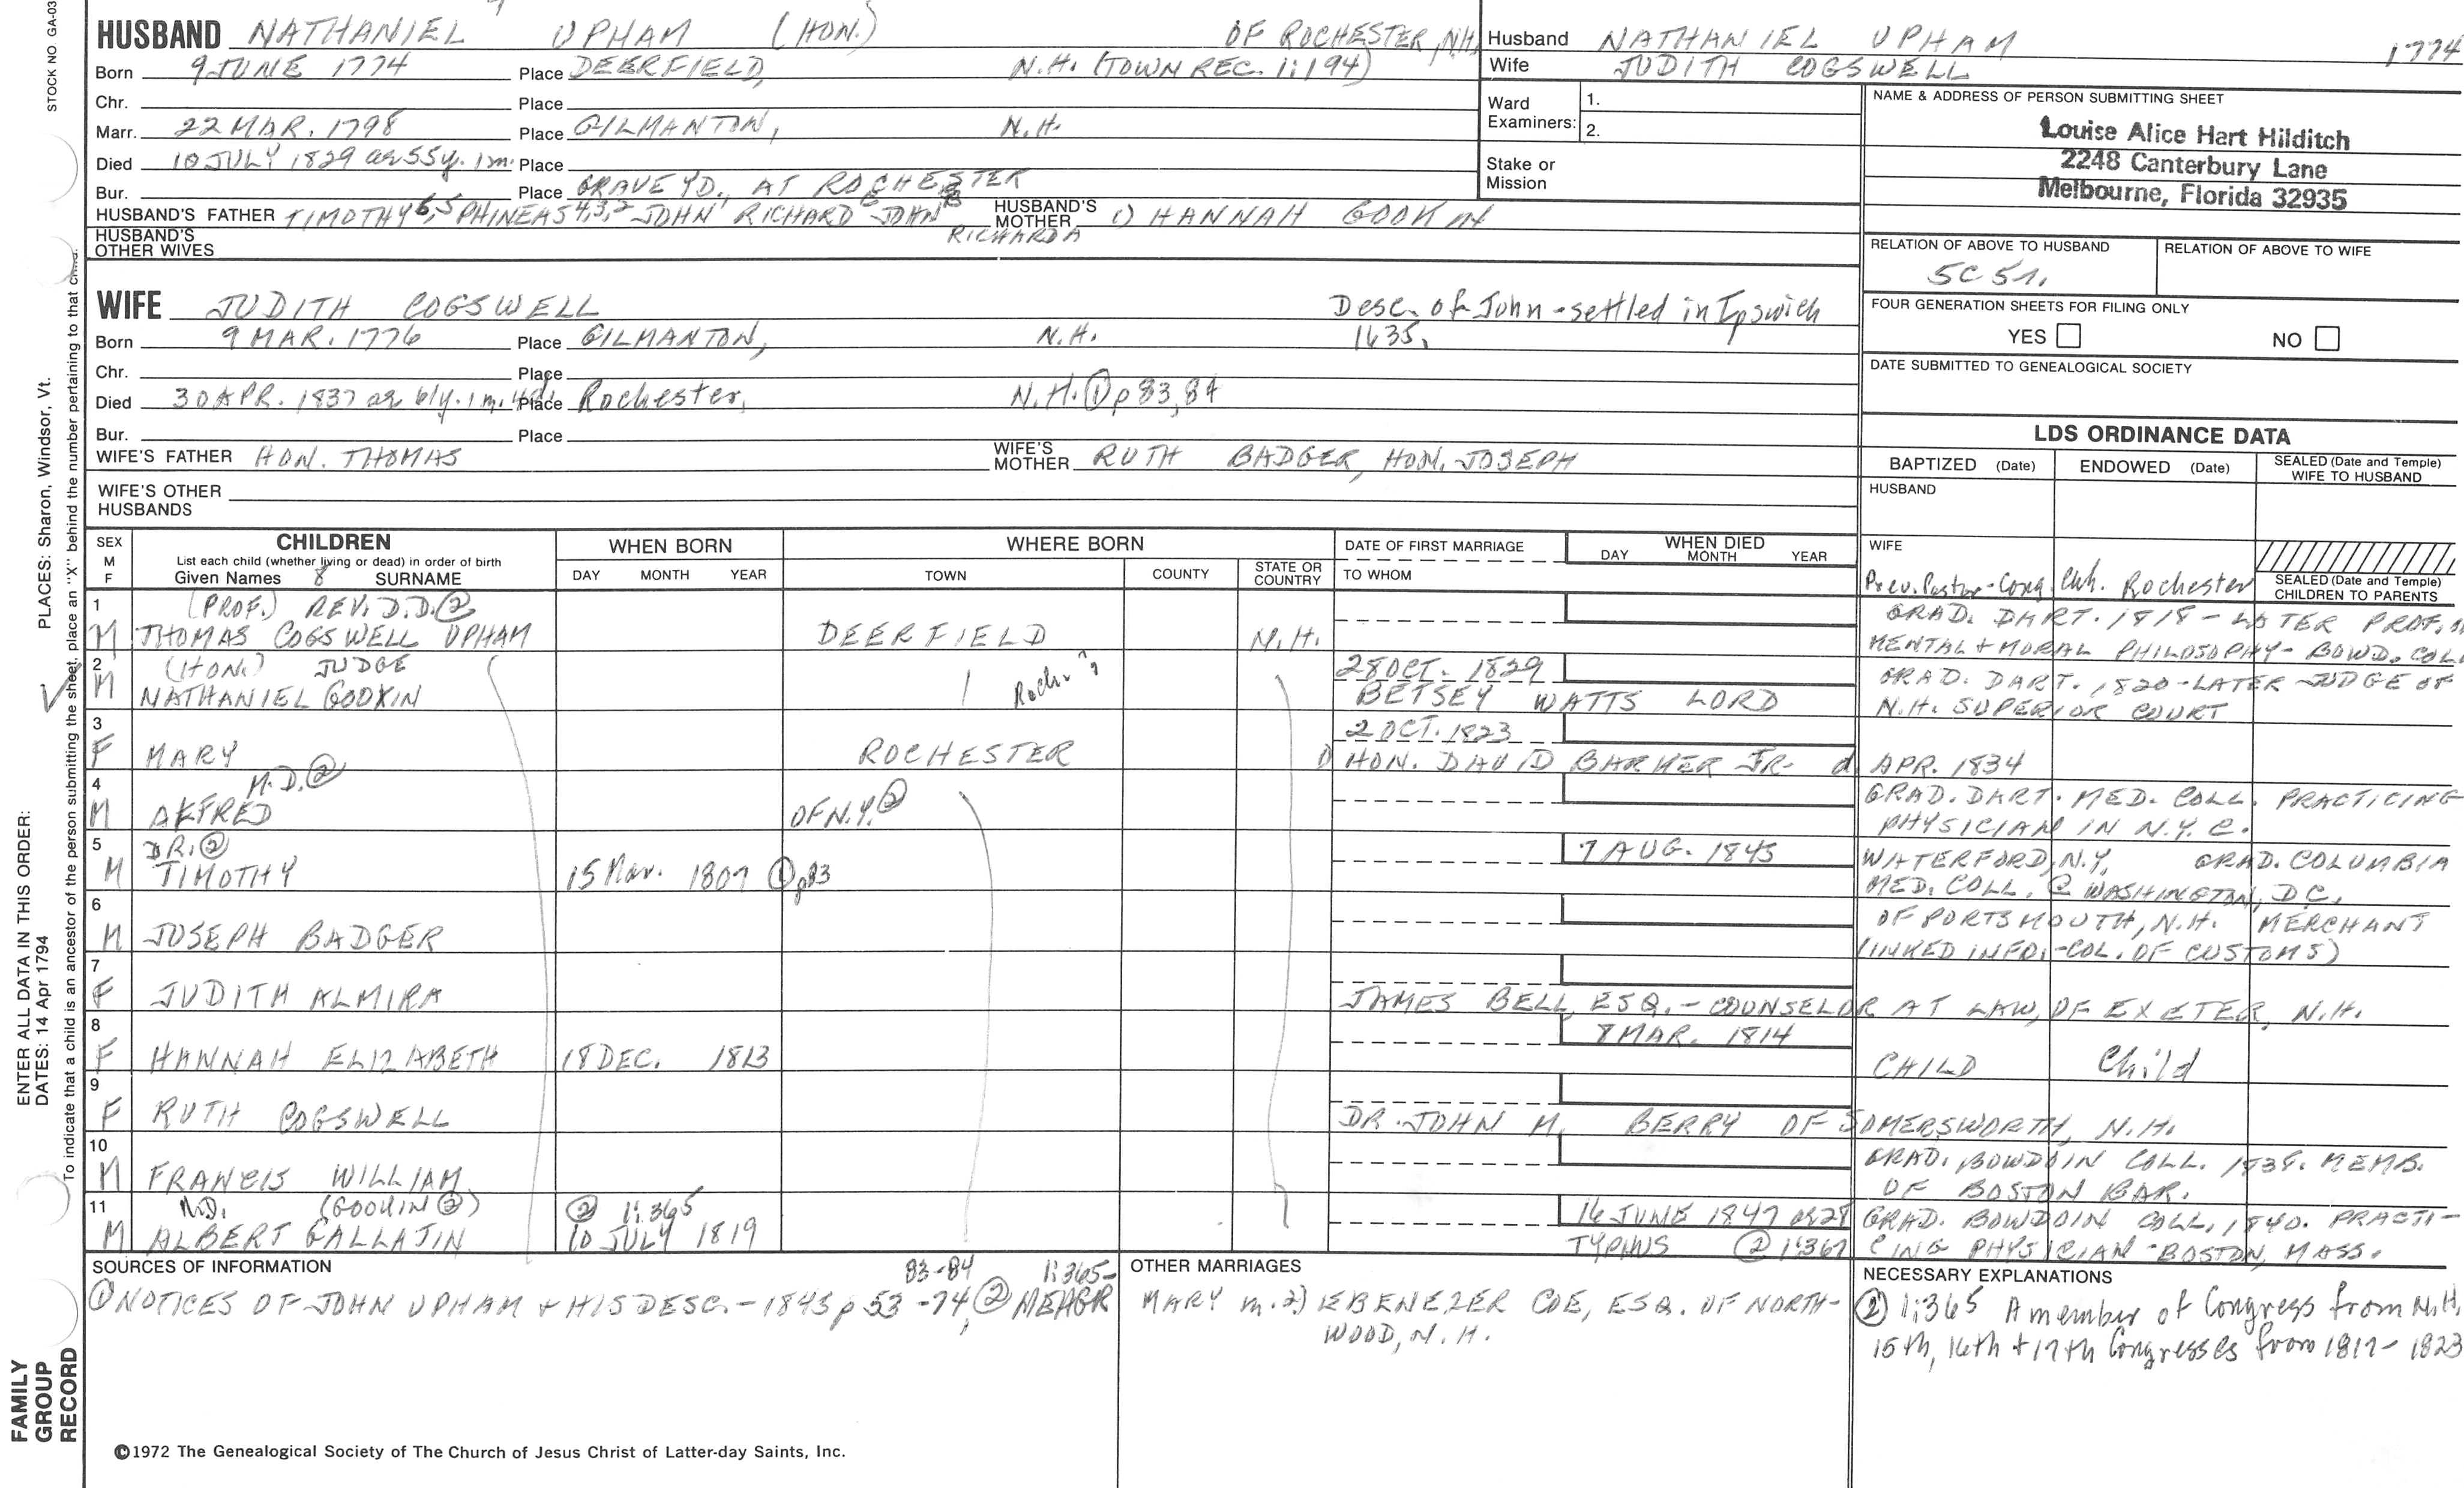 STOCK NO GA-03
HUSBAND NATHANIEL UPHAM (HON.) OF ROCHESTER, NH
Born 9 JUNE 1774 Place DEERFIELD, N.H. (TOWN REC. 1:194)
Chr. Place
Marr. 22 MAR. 1798 Place GILMANTON, N.H.
Died 10 JULY 1829 ae 55y. 1m. Place
Bur. Place GRAVEYD., AT ROCHESTER
HUSBAND'S FATHER TIMOTHY 6,5 PHINEAS 4,3,2 JOHN 1 RICHARD JOHN
HUSBAND'S MOTHER 1) HANNAH GOOKIN
RICHARD A
HUSBAND'S OTHER WIVES
WIFE JUDITH COGSWELL Desc. of John - settled in Ipswich
Born 9 MAR. 1776 Place GILMANTON, N.H. 1635.
Chr. Place
Died 30 APR. 1837 ae 61y. 1m. Place Rochester, N.H. ① p 83, 84
Bur. Place
WIFE'S FATHER HON. THOMAS WIFE'S MOTHER RUTH BADGER, HON. JOSEPH
WIFE'S OTHER HUSBANDS
Husband NATHANIEL UPHAM 1774
Wife JUDITH COGSWELL
Ward Examiners: 1.
2.
Stake or Mission
NAME & ADDRESS OF PERSON SUBMITTING SHEET
Louise Alice Hart Hilditch
2248 Canterbury Lane
Melbourne, Florida 32935
RELATION OF ABOVE TO HUSBAND RELATION OF ABOVE TO WIFE
5C 5r.
FOUR GENERATION SHEETS FOR FILING ONLY
YES NO
DATE SUBMITTED TO GENEALOGICAL SOCIETY
LDS ORDINANCE DATA
BAPTIZED (Date) ENDOWED (Date) SEALED (Date and Temple) WIFE TO HUSBAND
HUSBAND
WIFE
SEALED (Date and Temple) CHILDREN TO PARENTS
SEX M F
CHILDREN
List each child (whether living or dead) in order of birth
Given Names 8 SURNAME
WHEN BORN
DAY MONTH YEAR
WHERE BORN
TOWN COUNTY STATE OR COUNTRY
DATE OF FIRST MARRIAGE
TO WHOM
WHEN DIED
DAY MONTH YEAR
Prev. Pastor - Cong. Chh. Rochester
1 (PROF.) REV. D.D. ② GRAD. DART. 1818 - LATER PROF.
M THOMAS COGSWELL UPHAM DEERFIELD N.H. MENTAL + MORAL PHILOSOPHY - BOWD. COLL
2 (HON.) JUDGE Roch. ? 28 OCT. 1829 GRAD. DART. 1820 - LATER JUDGE OF
M NATHANIEL GOOKIN BETSEY WATTS LORD N.H. SUPERIOR COURT
3 2 OCT. 1823
F MARY ROCHESTER 1) HON. DAVID BARKER JR. d APR. 1834
4 M.D. ② GRAD. DART. MED. COLL. PRACTICING
M ALFRED OF N.Y. ② PHYSICIAN IN N.Y.C.
5 DR. ② 7 AUG. 1845 WATERFORD, N.Y. GRAD. COLUMBIA
M TIMOTHY 15 Mar. 1807 ① p83 MED. COLL. @ WASHINGTON, D.C.
6 OF PORTSMOUTH, N.H. MERCHANT
M JOSEPH BADGER (INKED INFO. - COL. OF CUSTOMS)
7
F JUDITH ALMIRA JAMES BELL, ESQ. - COUNSELOR AT LAW, OF EXETER, N.H.
8 8 MAR. 1814
F HANNAH ELIZABETH 18 DEC. 1813 CHILD Child
9
F RUTH COGSWELL DR. JOHN M. BERRY OF SOMERSWORTH, N.H.
10 GRAD. BOWDOIN COLL. 1838. MEMB.
M FRANCIS WILLIAM OF BOSTON BAR.
11 M.D. (GOOKIN ②) ② 1:365 16 JUNE 1847 ae 28 GRAD. BOWDOIN COLL. 1840. PRACTI-
M ALBERT GALLATIN 10 JULY 1819 TYPHUS ② 1:367 CING PHYSICIAN - BOSTON, MASS.
SOURCES OF INFORMATION
83-84 1:365-
① NOTICES OF JOHN UPHAM + HIS DESC. - 1845 p 53-74, ② MEHGR
OTHER MARRIAGES
MARY m. 2) EBENEZER COE, ESQ. OF NORTH-
WOOD, N.H.
NECESSARY EXPLANATIONS
② 1:365 A member of Congress from N.H.
15th, 16th + 17th Congresses from 1817-1823
©1972 The Genealogical Society of The Church of Jesus Christ of Latter-day Saints, Inc.
FAMILY GROUP RECORD
ENTER ALL DATA IN THIS ORDER:
DATES: 14 Apr 1794
PLACES: Sharon, Windsor, Vt.
To indicate that a child is an ancestor of the person submitting the sheet, place an "X" behind the number pertaining to that child.